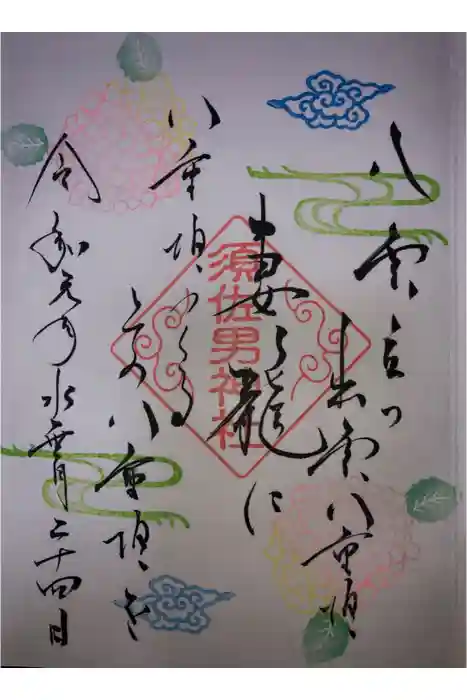 八雲立つ
出雲八重垣
妻籠に
八重垣つくる
その八重垣を
令和元年水無月二十四日
須佐男神社